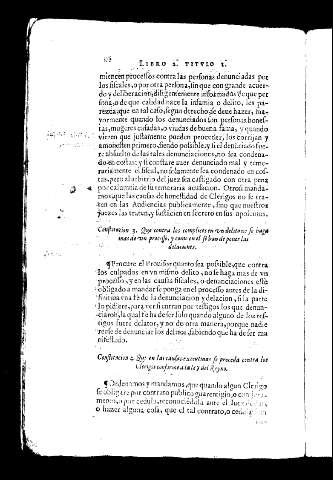 LIBRO 2. TITVLO 1.
miencen processos contra las personas denunciadas por
los fiscales, o por otra persona, sin que con grande acuer-
do y deliberacion, diligentemente informados de que per
sona, o de que calidad nace la infamia o delito, les pa-
rezca que en tal caso, segun derecho se deue hazer, ma-
yormente quando los denunciados son personas hones-
tas, mugeres casadas, o viudas de buena fama, y quando
vieren que justamente pueden proceder, los corrijan y
amonesten primero, siendo possible, y si el denunciado fue-
re absuelto de las tales denunciaciones, no sea condena-
do en costas, y si constare auer denunciado mal y teme-
rariamente el fiscal, no solamente sea condenado en cos-
tas, pero al arbitrio del juez sea castigado con otra pena
por calumnia de su temeraria acusacion. Otrosi manda-
mos, que las causas de honestidad de Clerigos no se tra-
ten en las Audiencias publicamente, sino que nuestros
juezes las traten, y sustācien en secreto en sus aposentos.
Constitucion 3. Que contra los complices en vn delito no se haga
mas de vn processo, y como en el se han de poner las
delaciones.
¶ Procure el Prouisor quanto sea possible, que contra
los culpados en vn mismo delito, no se haga mas de vn
processo, y en las causas fiscales, o denunciaciones este
obligado a mandar se ponga en el processo antes de la di-
finitiua vna fè de la denunciacion y delacion, si la parte
lo pidiere, para ver si entraron por testigos los que denun-
ciaron, la qual fè ha de ser solo quando alguno de los tes-
tigos fuere delator, y no de otra manera, porque nadie
rehuse denunciar los delitos, sabiendo que ha de ser ma
nifestado.
Constitucion 4. Que en las causas executiuas se proceda contra los
Clerigos conforme a la ley del Reyno.
¶ Ordenamos y mandamos, que quando algun Clerigo
se obligare por contrato publico guarentigio, o con jura-
mento, o por cedula reconocida la ante el Juez de dar,
o hazer alguna cosa, que el tal contrato, o cedula